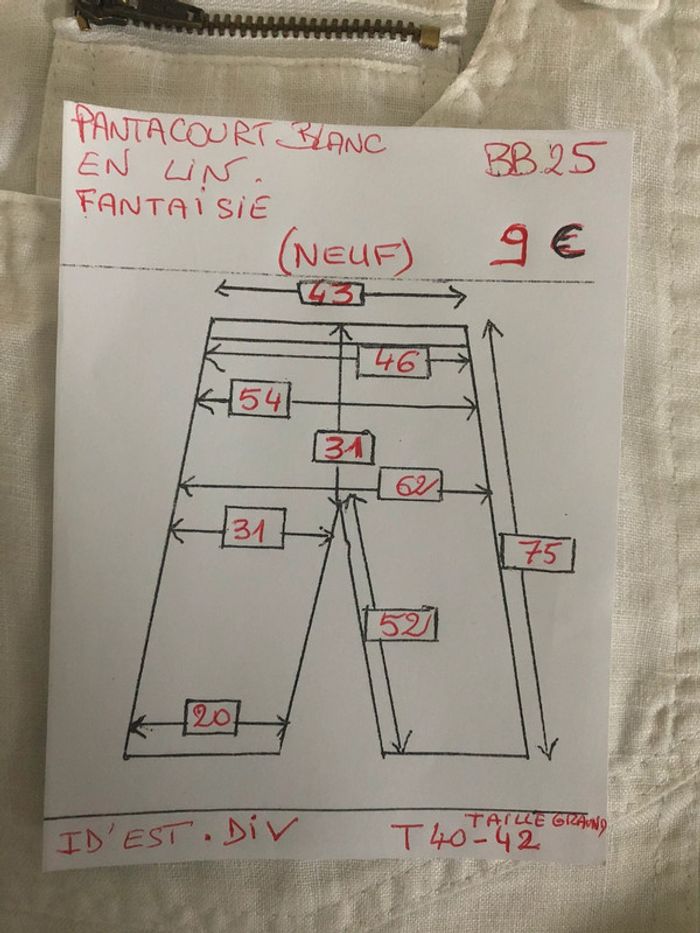 PANTACOURT BLANC
EN LIN.
FANTAISIE
BB.25
(NEUF)
9 €
43
46
54
31
62
31
75
52
20
ID'EST.DIV
T 40-42
TAILLE GRAND